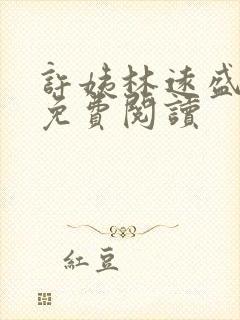 許姨林速盛
免費閱讀
紅豆